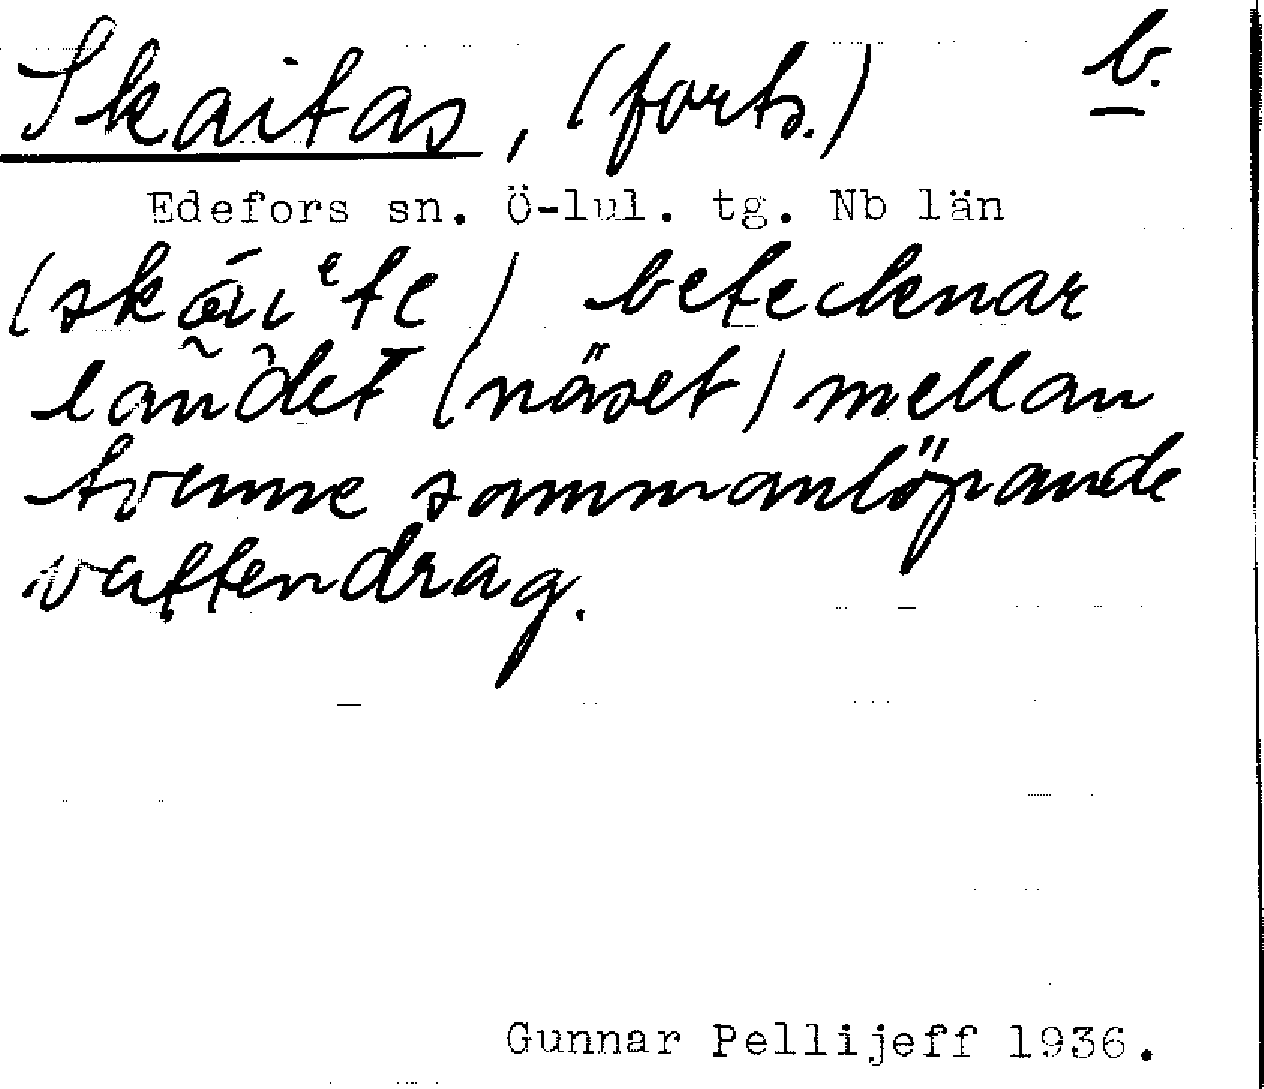 Skaitas, (forts.) b.
Edefors sn. Ö-lul. tg. Nb län
betecknar
landet (näset) mellan
tvenne sammanlöpande
vattendrag.
Gunnar Pellijeff 1936.